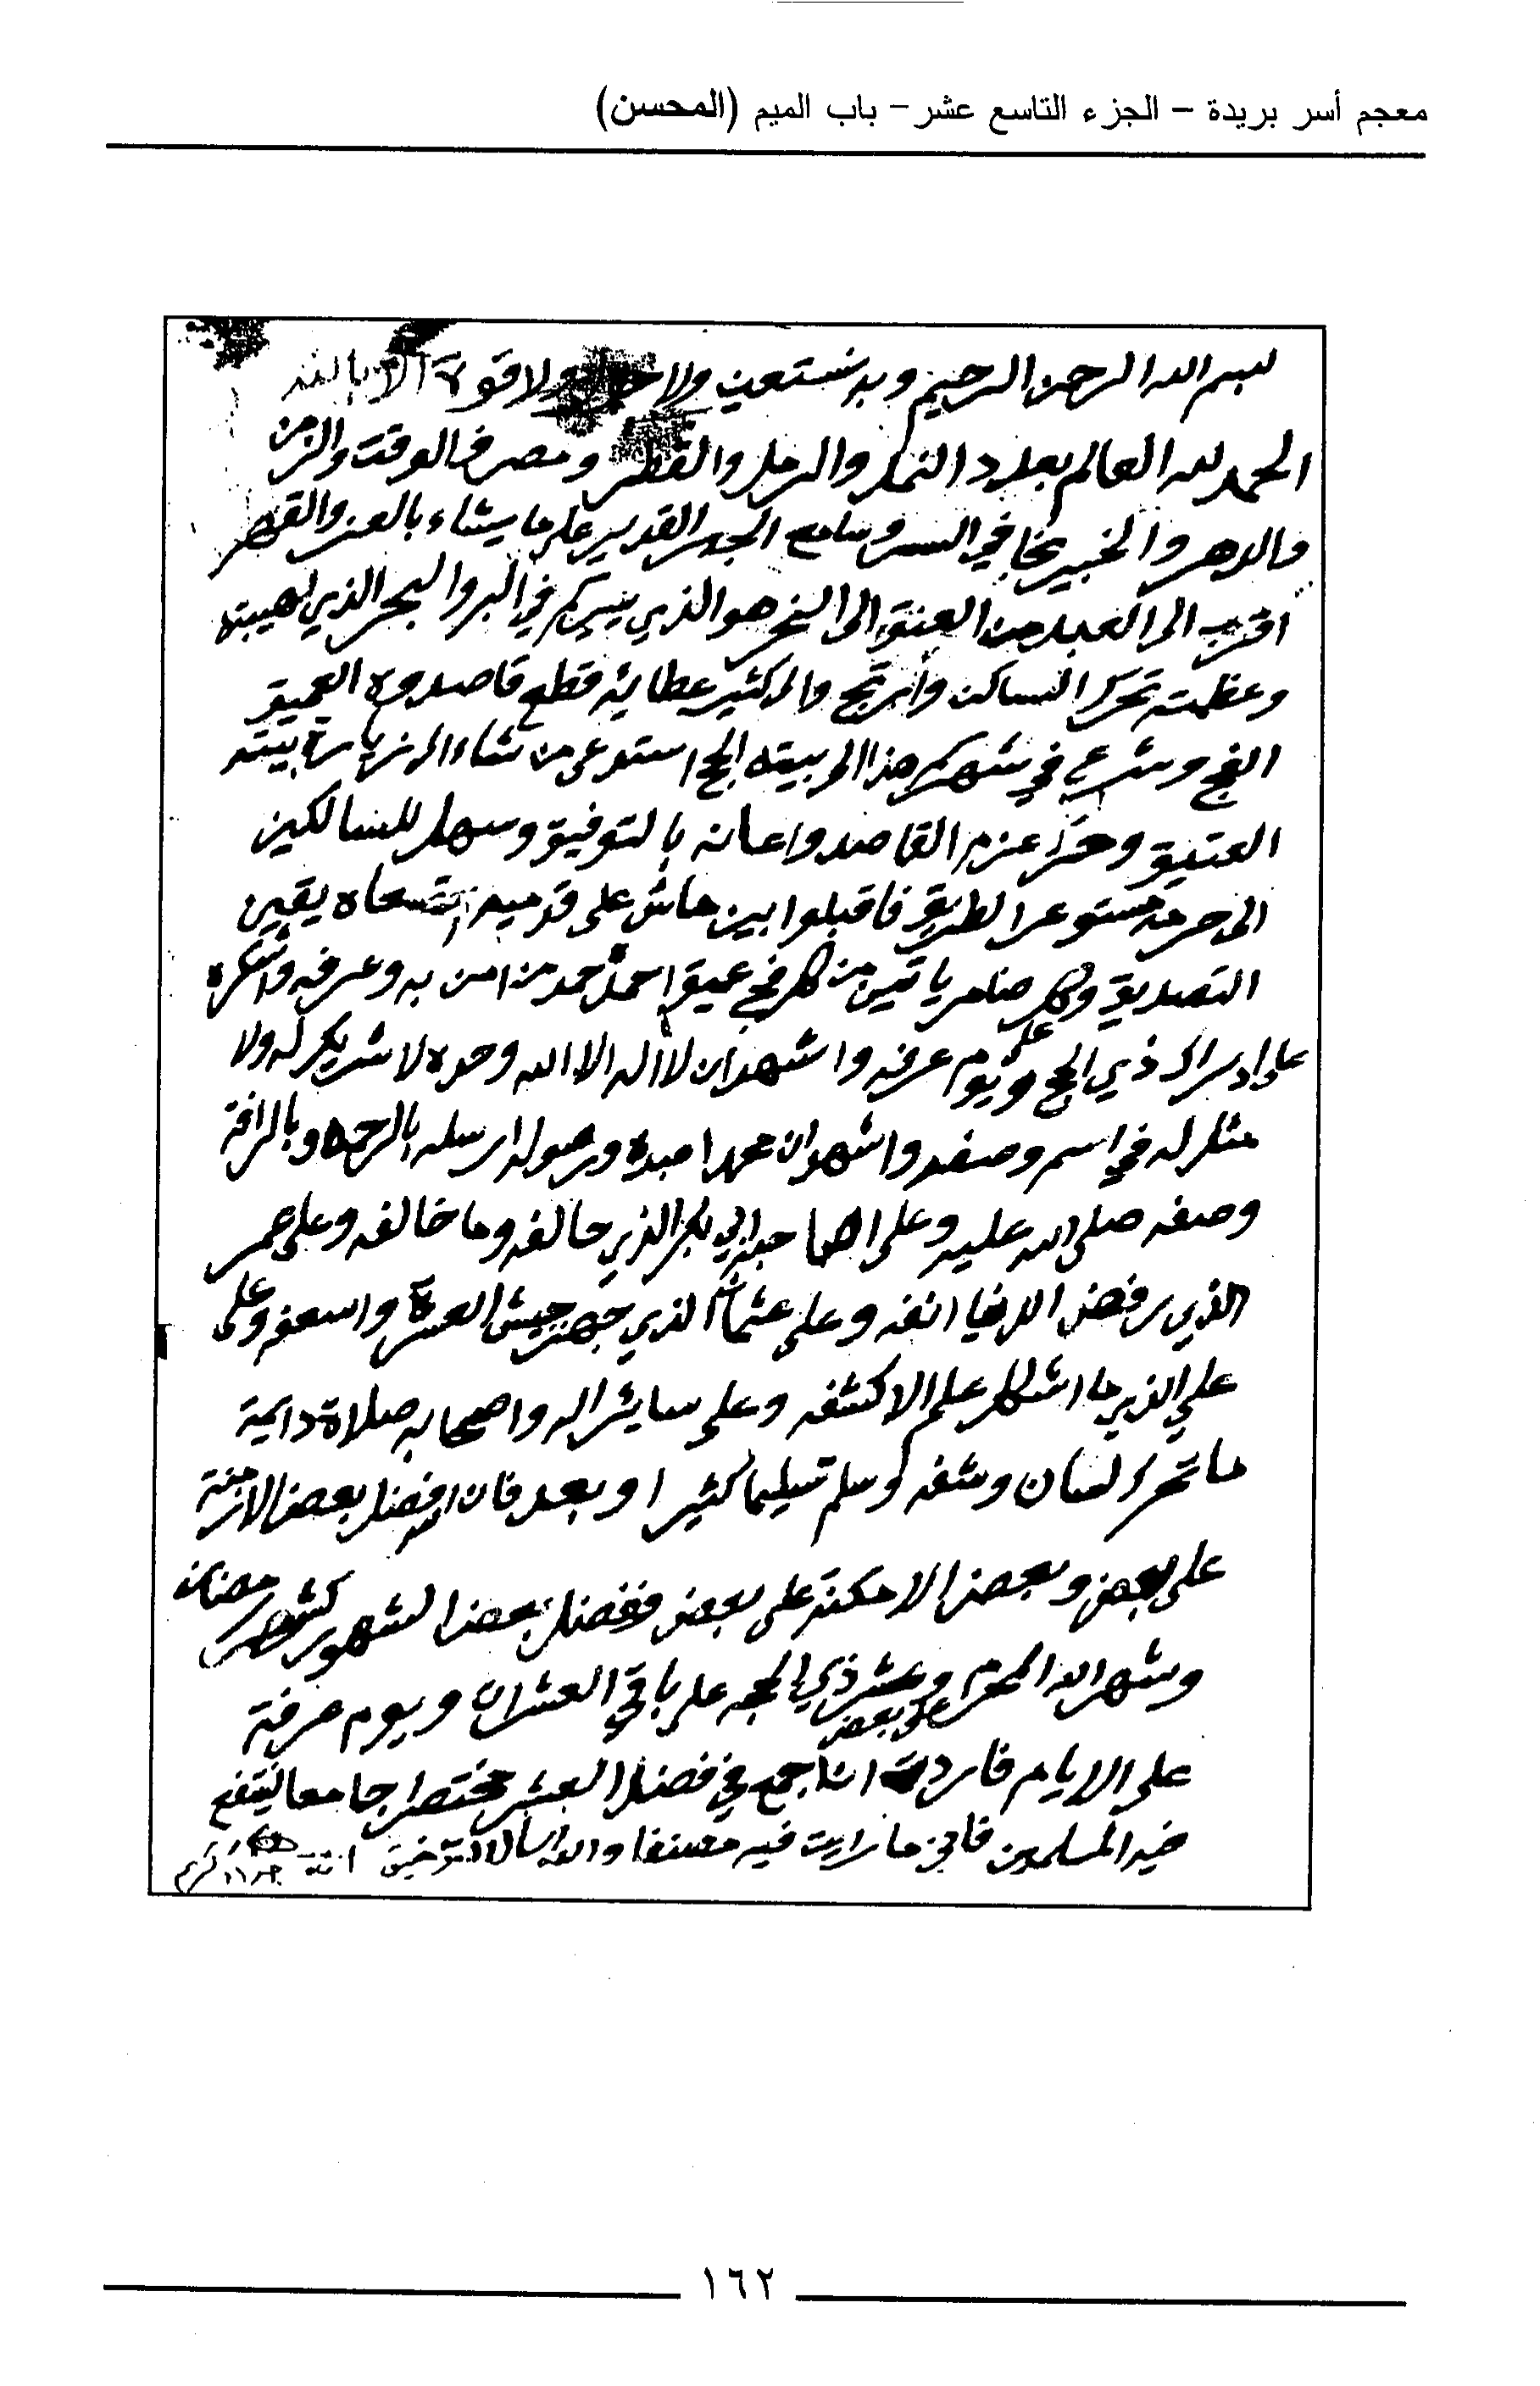 معجم أسر بريدة – الجزء التاسع عشر – باب الميم (المحسن)
بسم الله الرحمن الرحيم وبه نستعين ولا حول ولا قوة الا بالله
الحمد لله العالم بعدد النمل والرمل والقطر ومصرف الوقت والزمن
والدهر والخبير بخافي السر وسامع الجهر القدير على ما يشاء بالعز والقهر
اقرب الى العبد من العنق الى النحر هو الذي يسيركم في البر والبحر الذي لهيبته
وعظمته تحرك الساكن وارتج والى كثير عطايه قطع قاصدوه العميق
الفج وشرع في شهركم هذا الى بيته الحج استدعى من شاء الى زيارة بيته
العتيق وحرك عزم القاصد واعانه بالتوفيق وسهل للسالكين
الى حرمه مستوعر الطريق فاقبلوا بين ماش على قدميه يقين
التصديق وكل ضامر ياتين من كل فج عميق احمده حمد من امن به وعرفه واشكره
على ادراك ذي الحج ويوم عرفه واشهد ان لا اله الا الله وحده لا شريك له ولا
مثل له في اسم وصفه واشهد ان محمدا عبده ورسوله ارسله بالرحمه وبالرافة
وصفه صلى الله عليه وعلى صاحبه ابي بكر الذي حالفه وما خالفه وعلى عمر
الذي رفض الدنيا انفه وعلى عثمان الذي جهز جيش العسرة واسعفه وعلى
علي الذي ما اشكل علم الا كشفه وعلى سايئر اله واصحابه صلاة دايمة
ما تحرك لسان وشفه وسلم تسليما كثيرا وبعد فان افضل بعض الازمنة
على بعض وبعض الامكنة على بعض ففضل بعض الشهور كشهر رمضان
وشهر الله المحرم وعشر ذي الحجه على باقي العشرات ويوم عرفة
على بعض
على الايام فاردت ان اجمع في فضل العشر مختصرا جامعا لينتفع
فيه المسلمين فاني ما رايت فيه مصنفا والله اسال التوفيق انه كريم
١٦٢